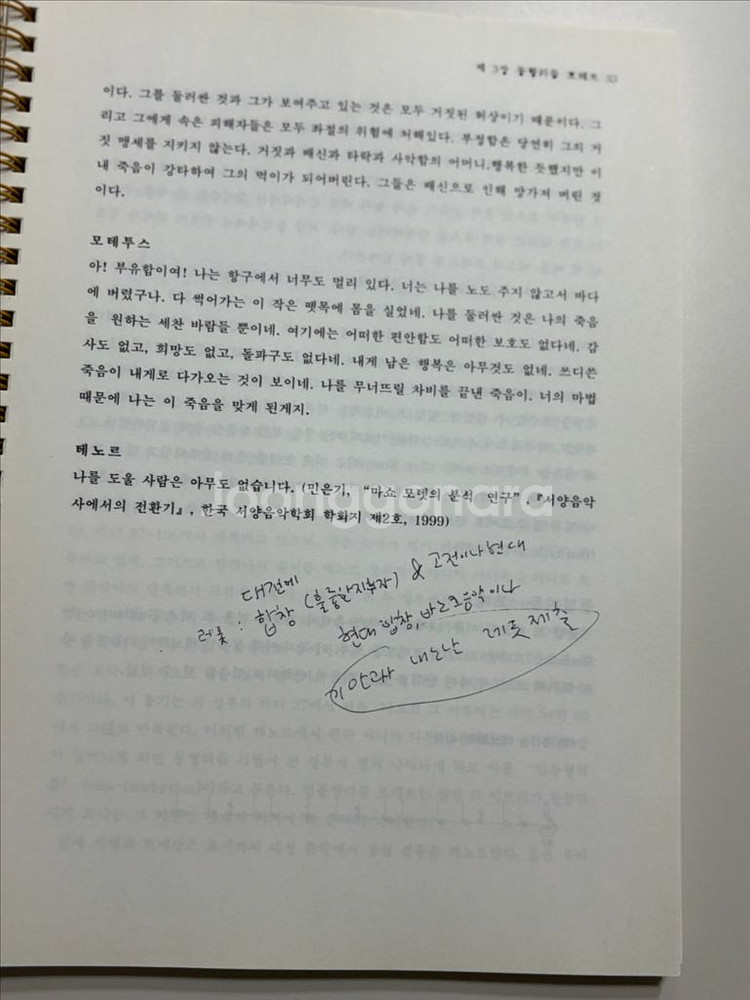 제 3장 동형리듬 모테트 33
이다. 그를 둘러싼 것과 그가 보여주고 있는 것은 모두 거짓된 허상이기 때문이다. 그
리고 그에게 속은 피해자들은 모두 좌절의 위험에 처해있다. 부정함은 당연히 그의 거
짓 맹세를 지키지 않는다. 거짓과 배신과 타락과 사악함의 어머니.행복한 듯했지만 이
내 죽음이 강타하여 그의 먹이가 되어버린다. 그들은 배신으로 인해 망가져 버린 것
이다.
모테투스
아! 부유함이여! 나는 항구에서 너무도 멀리 있다. 너는 나를 노도 주지 않고서 바다
에 버렸구나. 다 썩어가는 이 작은 뗏목에 몸을 실었네. 나를 둘러싼 것은 나의 죽음
을 원하는 세찬 바람들 뿐이네. 여기에는 어떠한 편안함도 어떠한 보호도 없다네. 감
사도 없고, 희망도 없고, 돌파구도 없다네. 내게 남은 행복은 아무것도 없네. 쓰디쓴
죽음이 내게로 다가오는 것이 보이네. 나를 무너뜨릴 차비를 끝낸 죽음이. 너의 마법
때문에 나는 이 죽음을 맞게 된게지.
테노르
나를 도울 사람은 아무도 없습니다. (민은기, “마쇼 모텟의 분석 연구”, 『서양음악
사에서의 전환기』, 한국 서양음악학회 학회지 제2호, 1999)
joonggonara
대전에
레포 : 합창 ( ) & 고전이나 현대
현대 합창, 바로크음악이나
기안과사 내논난 레포 제출